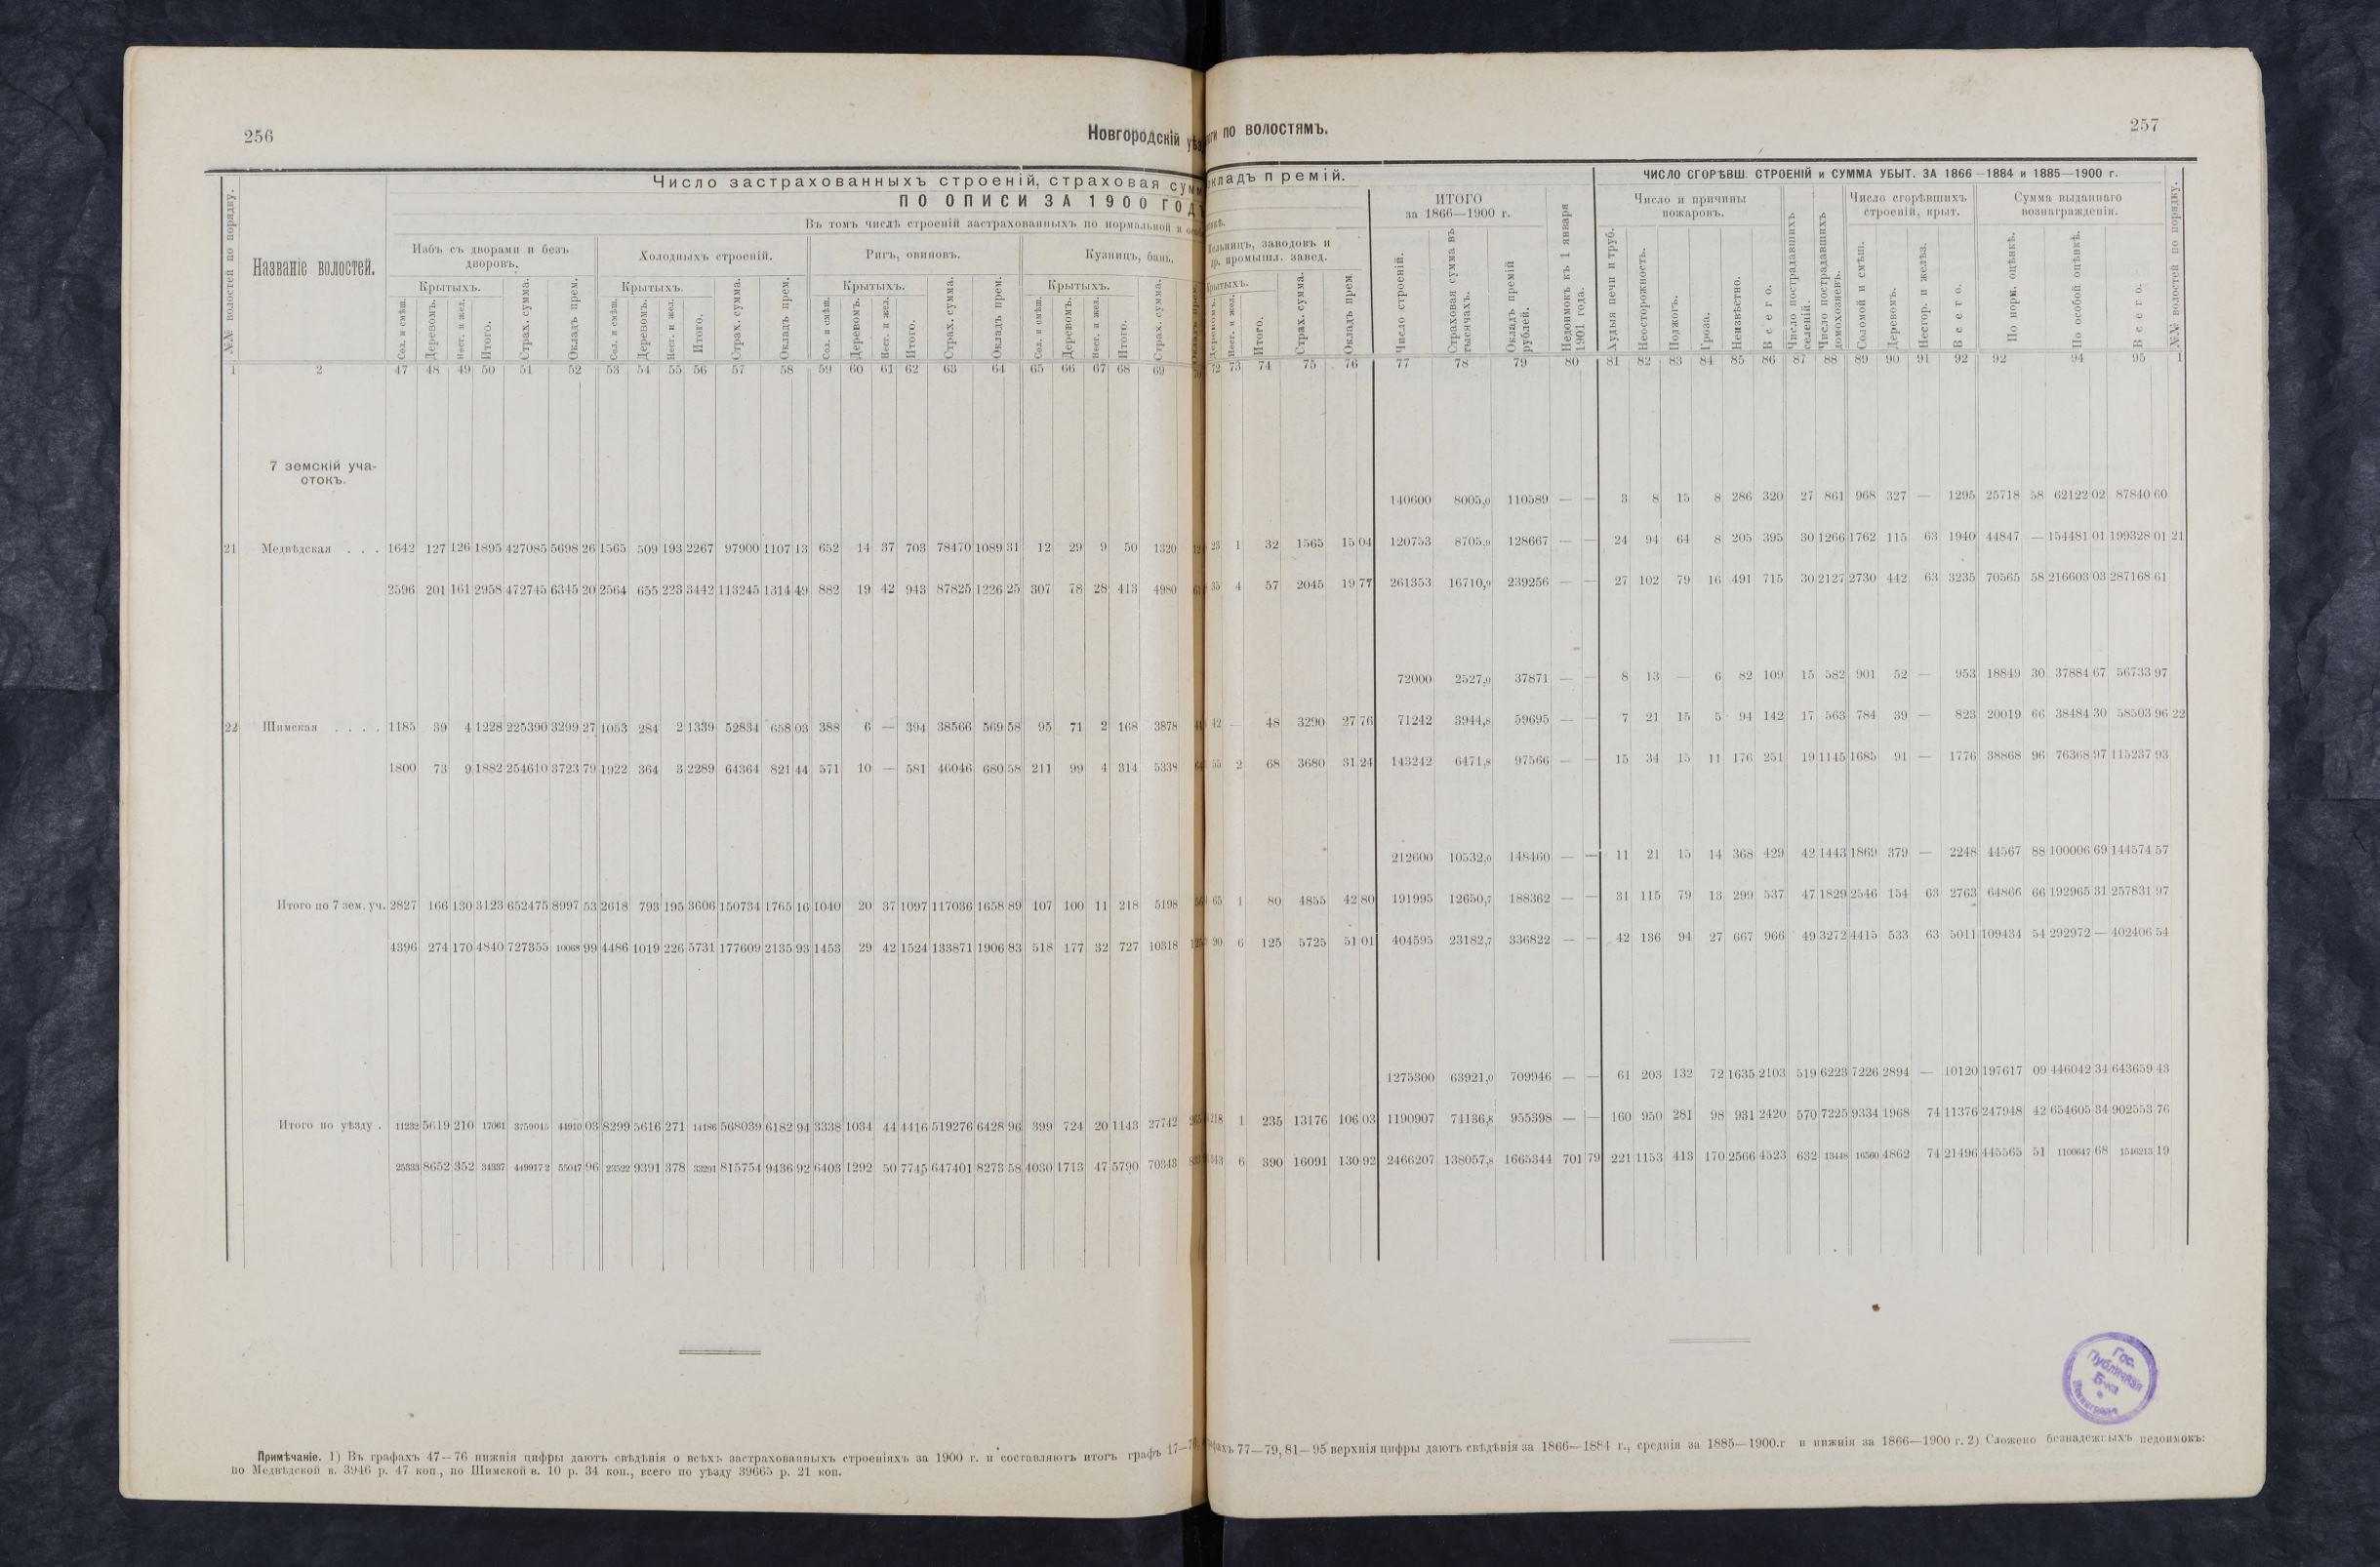 256
Новгородскій уѣз
оги по волостямъ.
257
Число застрахованныхъ строеній, страховая сумм
окладъ премій.
ПО ОПИСИ ЗА 1900 ГОДЪ
Въ томъ числѣ строеній застрахованныхъ по нормальной и особ
№№ волостей по порядку.
Названіе волостей.
Избъ съ дворами и безъ дворовъ.
Холодныхъ строеній.
Ригъ, овиновъ.
Кузницъ, бань.
Мельницъ, заводовъ и др. промышл. завед.
Крытыхъ. Крытыхъ. Крытыхъ. Крытыхъ. Крытыхъ.
Сол. и смѣш. Деревомъ. Несг. и жел. Итого. Страх. сумма. Окладъ прем.
Сол. и смѣш. Деревомъ. Несг. и жел. Итого. Страх. сумма. Окладъ прем.
Сол. и смѣш. Деревомъ. Несг. и жел. Итого. Страх. сумма. Окладъ прем.
Сол. и смѣш. Деревомъ. Несг. и жел. Итого. Страх. сумма.
Деревомъ. Несг. и жел. Итого. Страх. сумма. Окладъ прем.
ИТОГО
за 1866—1900 г.
Число строеній. Страховая сумма въ тысячахъ. Окладъ премій рублей.
Недоимокъ къ 1 января 1901 года.
ЧИСЛО СГОРѢВШ. СТРОЕНІЙ и СУММА УБЫТ. ЗА 1866—1884 и 1885—1900 г.
Число и причины пожаровъ.
Худыя печи и труб. Неосторожность. Поджогъ. Гроза. Неизвѣстно. Всего.
Число пострадавшихъ селеній. Число пострадавшихъ домохозяевъ.
Число сгорѣвшихъ строеній, крыт.
Соломой и смѣш. Деревомъ. Несгор. и желѣз. Всего.
Сумма выданнаго вознагражденія.
По норм. оцѣнкѣ. По особой оцѣнкѣ. Всего.
№№ волостей по порядку.
1 2 47 48 49 50 51 52 53 54 55 56 57 58 59 60 61 62 63 64 65 66 67 68 69 72 73 74 75 76 77 78 79 80 81 82 83 84 85 86 87 88 89 90 91 92 92 94 95 1
7 земскій уча-
стокъ.
140600 8005,0 110589 — — 3 8 15 8 286 320 27 861 968 327 — 1295 25718 58 62122 02 87840 60
21 Медвѣдская . . . 1642 127 126 1895 427085 5698 26 1565 509 193 2267 97900 1107 13 652 14 37 703 78470 1089 31 12 29 9 50 1320 23 1 32 1565 15 04 120753 8705,9 128667 — — 24 94 64 8 205 395 30 1266 1762 115 63 1940 44847 — 154481 01 199328 01 21
2596 201 161 2958 472745 6345 20 2564 655 223 3442 113245 1314 49 882 19 42 943 87825 1226 25 307 78 28 413 4980 35 4 57 2045 19 77 261353 16710,9 239256 — — 27 102 79 16 491 715 30 2127 2730 442 63 3235 70565 58 216603 03 287168 61
72000 2527,0 37871 — — 8 13 — 6 82 109 15 582 901 52 — 953 18849 30 37884 67 56733 97
22 Шимская . . . . 1185 39 4 1228 225390 3299 27 1053 284 2 1339 52834 658 03 388 6 — 394 38566 569 58 95 71 2 168 3878 42 — 48 3290 27 76 71242 3944,8 59695 — — 7 21 15 5 94 142 17 563 784 39 — 823 20019 66 38484 30 58503 96 22
1800 73 9 1882 254610 3723 79 1922 364 3 2289 64364 821 44 571 10 — 581 46046 680 58 211 99 4 314 5338 55 2 68 3680 31 24 143242 6471,8 97566 — — 15 34 15 11 176 251 19 1145 1685 91 — 1776 38868 96 76368 97 115237 93
212600 10532,0 148460 — — 11 21 15 14 368 429 42 1443 1869 379 — 2248 44567 88 100006 69 144574 57
Итого по 7 зем. уч. 2827 166 130 3123 652475 8997 53 2618 793 195 3606 150734 1765 16 1040 20 37 1097 117036 1658 89 107 100 11 218 5198 65 1 80 4855 42 80 191995 12650,7 188362 — — 31 115 79 13 299 537 47 1829 2546 154 63 2763 64866 66 192965 31 257831 97
4396 274 170 4840 727355 10068 99 4486 1019 226 5731 177609 2135 93 1453 29 42 1524 133871 1906 83 518 177 32 727 10318 90 6 125 5725 51 01 404595 23182,7 336822 — — 42 136 94 27 667 966 49 3272 4415 533 63 5011 109434 54 292972 — 402406 54
1275300 63921,0 709946 — — 61 203 132 72 1635 2103 519 6223 7226 2894 — 10120 197617 09 446042 34 643659 43
Итого по уѣзду . 11232 5619 210 17061 3759045 44910 03 8299 5616 271 14186 568039 6182 94 3338 1034 44 4416 519276 6428 96 399 724 20 1143 27742 218 1 235 13176 106 03 1190907 74136,8 955398 — — 160 950 281 98 931 2420 570 7225 9334 1968 74 11376 247948 42 654605 34 902553 76
25333 8652 352 34337 4499172 55047 96 23522 9391 378 33291 815754 9436 92 6403 1292 50 7745 647401 8273 58 4030 1713 47 5790 70343 343 6 390 16091 130 92 2466207 138057,8 1665344 701 79 221 1153 413 170 2566 4523 632 13448 16560 4862 74 21496 445565 51 1100647 68 1546213 19
Гос.
Публичная
Б-ка
Примѣчаніе. 1) Въ графахъ 47—76 нижнія цифры даютъ свѣдѣнія о всѣхъ застрахованныхъ строеніяхъ за 1900 г. и составляютъ итогъ графъ 17— графахъ 77—79, 81—95 верхнія цифры даютъ свѣдѣнія за 1866—1884 г., среднія за 1885—1900.г и нижнія за 1866—1900 г. 2) Сложено безнадежныхъ недоимокъ:
по Медвѣдской в. 3946 р. 47 коп., по Шимской в. 10 р. 34 коп., всего по уѣзду 39665 р. 21 коп.